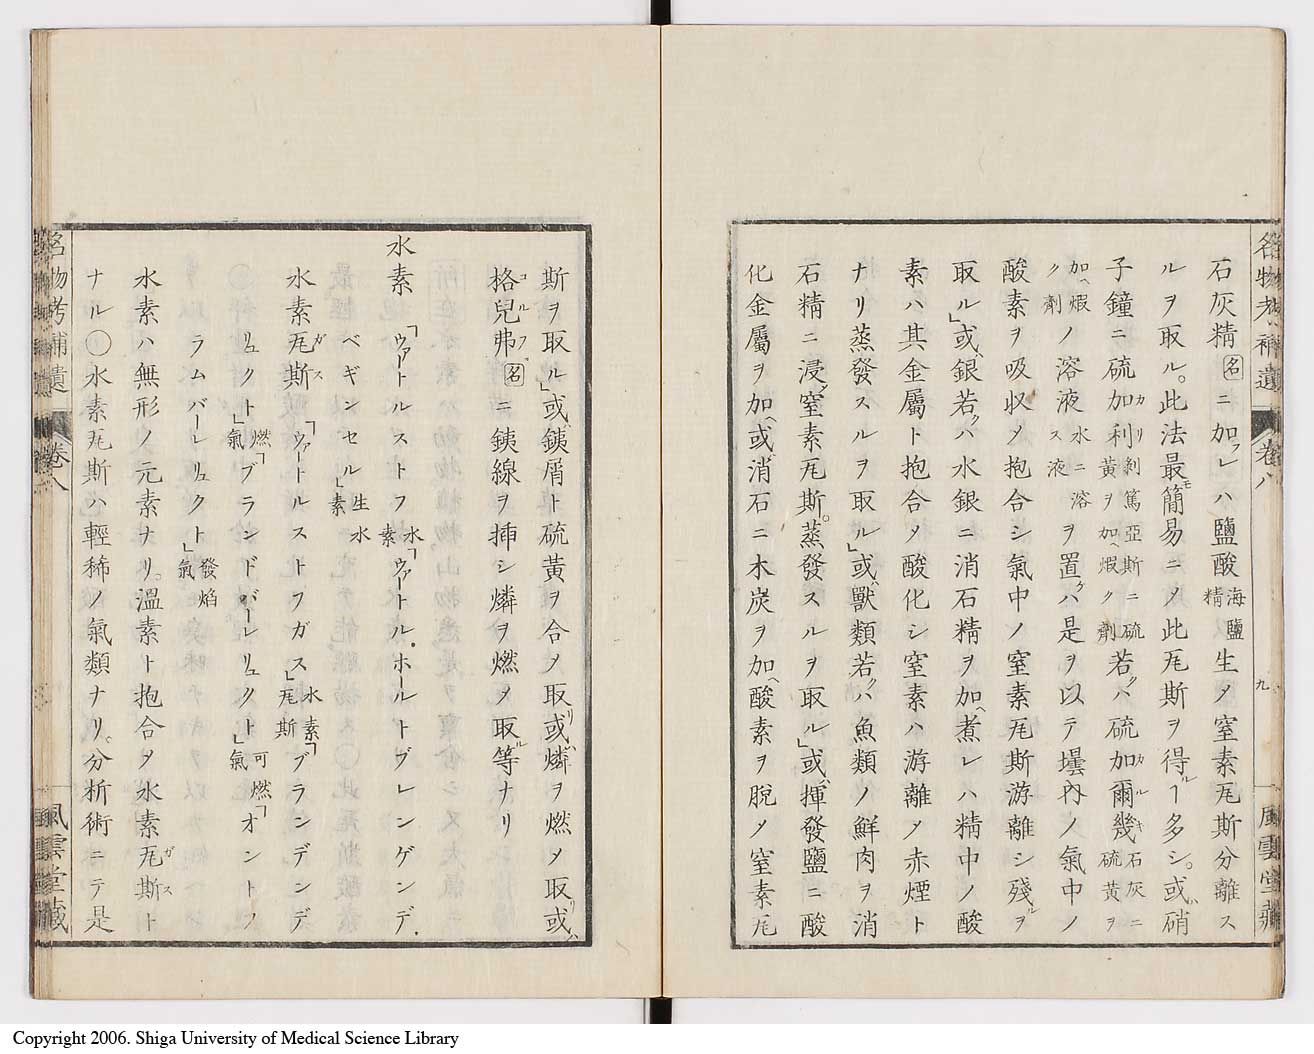 名物考補遺 卷八 九 風雲堂藏
石灰精名ニ加フレハ鹽酸海鹽精生ノ窒素瓦斯分離ス
ルヲ取ル。此法最モ簡易ニメ此瓦斯ヲ得ルヿ多シ。或ハ硝
子鐘ニ硫加利カリ剝篤亞斯ニ硫黃ヲ加ヘ煆ク劑若クハ硫加爾幾カルキ石灰ニ硫黃ヲ
加ヘ煆ク劑ノ溶液水ニ溶ス液ヲ置クハ是ヲ以テ壜內ノ氣中ノ
酸素ヲ吸收メ抱合シ氣中ノ窒素瓦斯游離シ殘ルヲ
取ル」或ハ銀若クハ水銀ニ消石精ヲ加ヘ煮レハ精中ノ酸
素ハ其金屬ト抱合ノ酸化シ窒素ハ游離ノ赤煙ト
ナリ蒸發スルヲ取ル」或ハ獸類若クハ魚類ノ鮮肉ヲ消
石精ニ浸シ窒素瓦斯。蒸發スルヲ取ル」或ハ揮發鹽ニ酸
化金屬ヲ加ヘ或ハ消石ニ木炭ヲ加ヘ酸素ヲ脫ノ窒素瓦
斯ヲ取ル」或ハ鋏屑ト硫黃ヲ合ノ取リ或ハ燐ヲ燃メ取或ハ
格兒弗コルフ名ニ鋏線ヲ揷シ燐ヲ燃メ取ル等ナリ
水素「ヴァートルストフ水素「ヴァートル.ホールトブレンゲンデ.
ベギンセル」生水素
水素瓦斯ガス「ヴァートルストフガス」水素瓦斯「ブランデンデ
リュクト」燃氣「ブランドバーレリュクト」可燃氣「オントノ
ラムバーレリュクト」發焰氣
水素ハ無形ノ元素ナリ。溫素ト抱合タ水素瓦斯ガスト
ナル〇水素瓦斯ハ輕稀ノ氣類ナリ。分析術ニテ是
名物考補遺 卷八 風雲堂藏
Copyright 2006. Shiga University of Medical Science Library